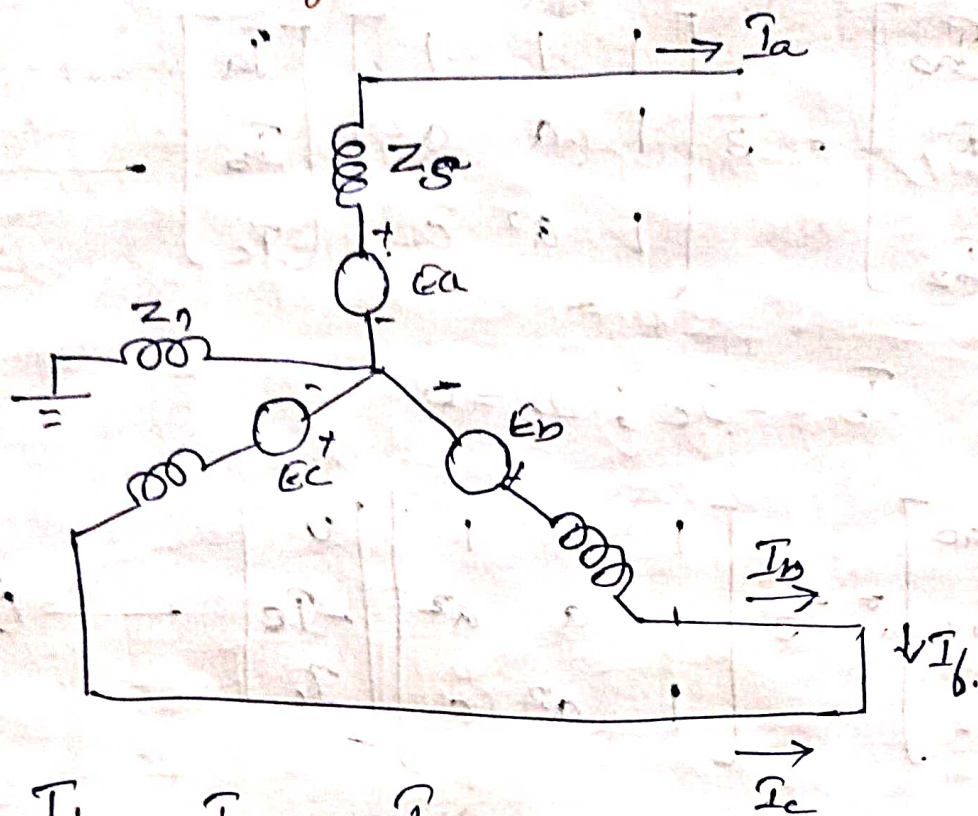 Ia
Zg
+
Ea
-
Zn
-
-
Eb
+
Ec
+
Ib
If.
Ic